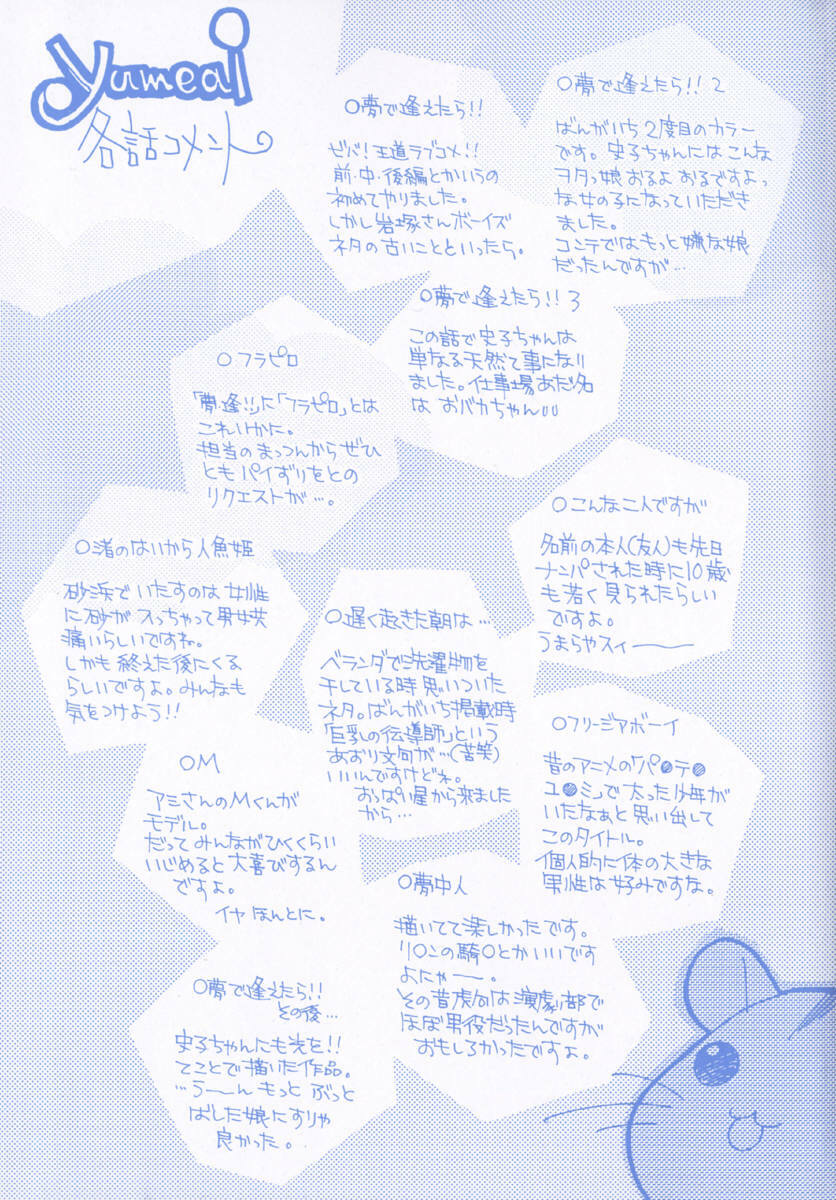 yumeai
各話コメント
○夢で逢えたら!!
ビバ!王道ラブコメ!!
前・中・後編とかいうの
初めてやりました。
しかし岩塚さんボーイズ
ネタの古いことといったら。
○夢で逢えたら!! 2
ばんがいち2度目のカラー
です。史子ちゃんにはこんな
ヲタっ娘おるよおるですよっ
な女の子になっていただき
ました。
コンテではもっと嫌な娘
だったんですが…
○夢で逢えたら!! 3
この話で史子ちゃんは
単なる天然て事になり
ました。仕事場あだ名
は おバカちゃん
○フラピロ
「夢・逢」に「フラピロ」とは
これいかに。
担当のまっつんからぜひ
ともパイずりをとの
リクエストが…。
○こんな二人ですが
名前の本人(友人)も先日
ナンパされた時に10歳
も若く見られたらしい
ですよ。
うまらやスィ――
○渚のはいから人魚姫
砂浜でいたすのは女性
に砂が入っちゃって男女共
痛いらしいですね。
しかも終えた後にくる
らしいですよ。みんなも
気をつけよう!!
○遅く起きた朝は…
ベランダで洗濯物を
干している時思いついた
ネタ。ばんがいち掲載時
「巨乳の伝導師」という
あおり文句が…(苦笑)
いいんですけどね。
おっぱい星から来ました
から…
○フリージアボーイ
昔のアニメの「パ●テ●
ユ●ミ」で太った少年が
いたなぁと思い出して
このタイトル。
個人的に体の大きな
男性は好みですな。
○M
アミさんのMくんが
モデル。
だってみんながひくくらい
いじめると大喜びするん
ですよ。
イヤほんとに。
○夢中人
描いてて楽しかったです。
リ○ンの騎○とかいいです
よにゃー。
その昔虎向は演劇部で
ほぼ男役だったんですが
おもしろかったですよ。
○夢で逢えたら!!
その後…
史子ちゃんにも光を!!
てことで描いた作品。
…うーん もっと ぶっと
ばした娘にすりゃ
良かった。